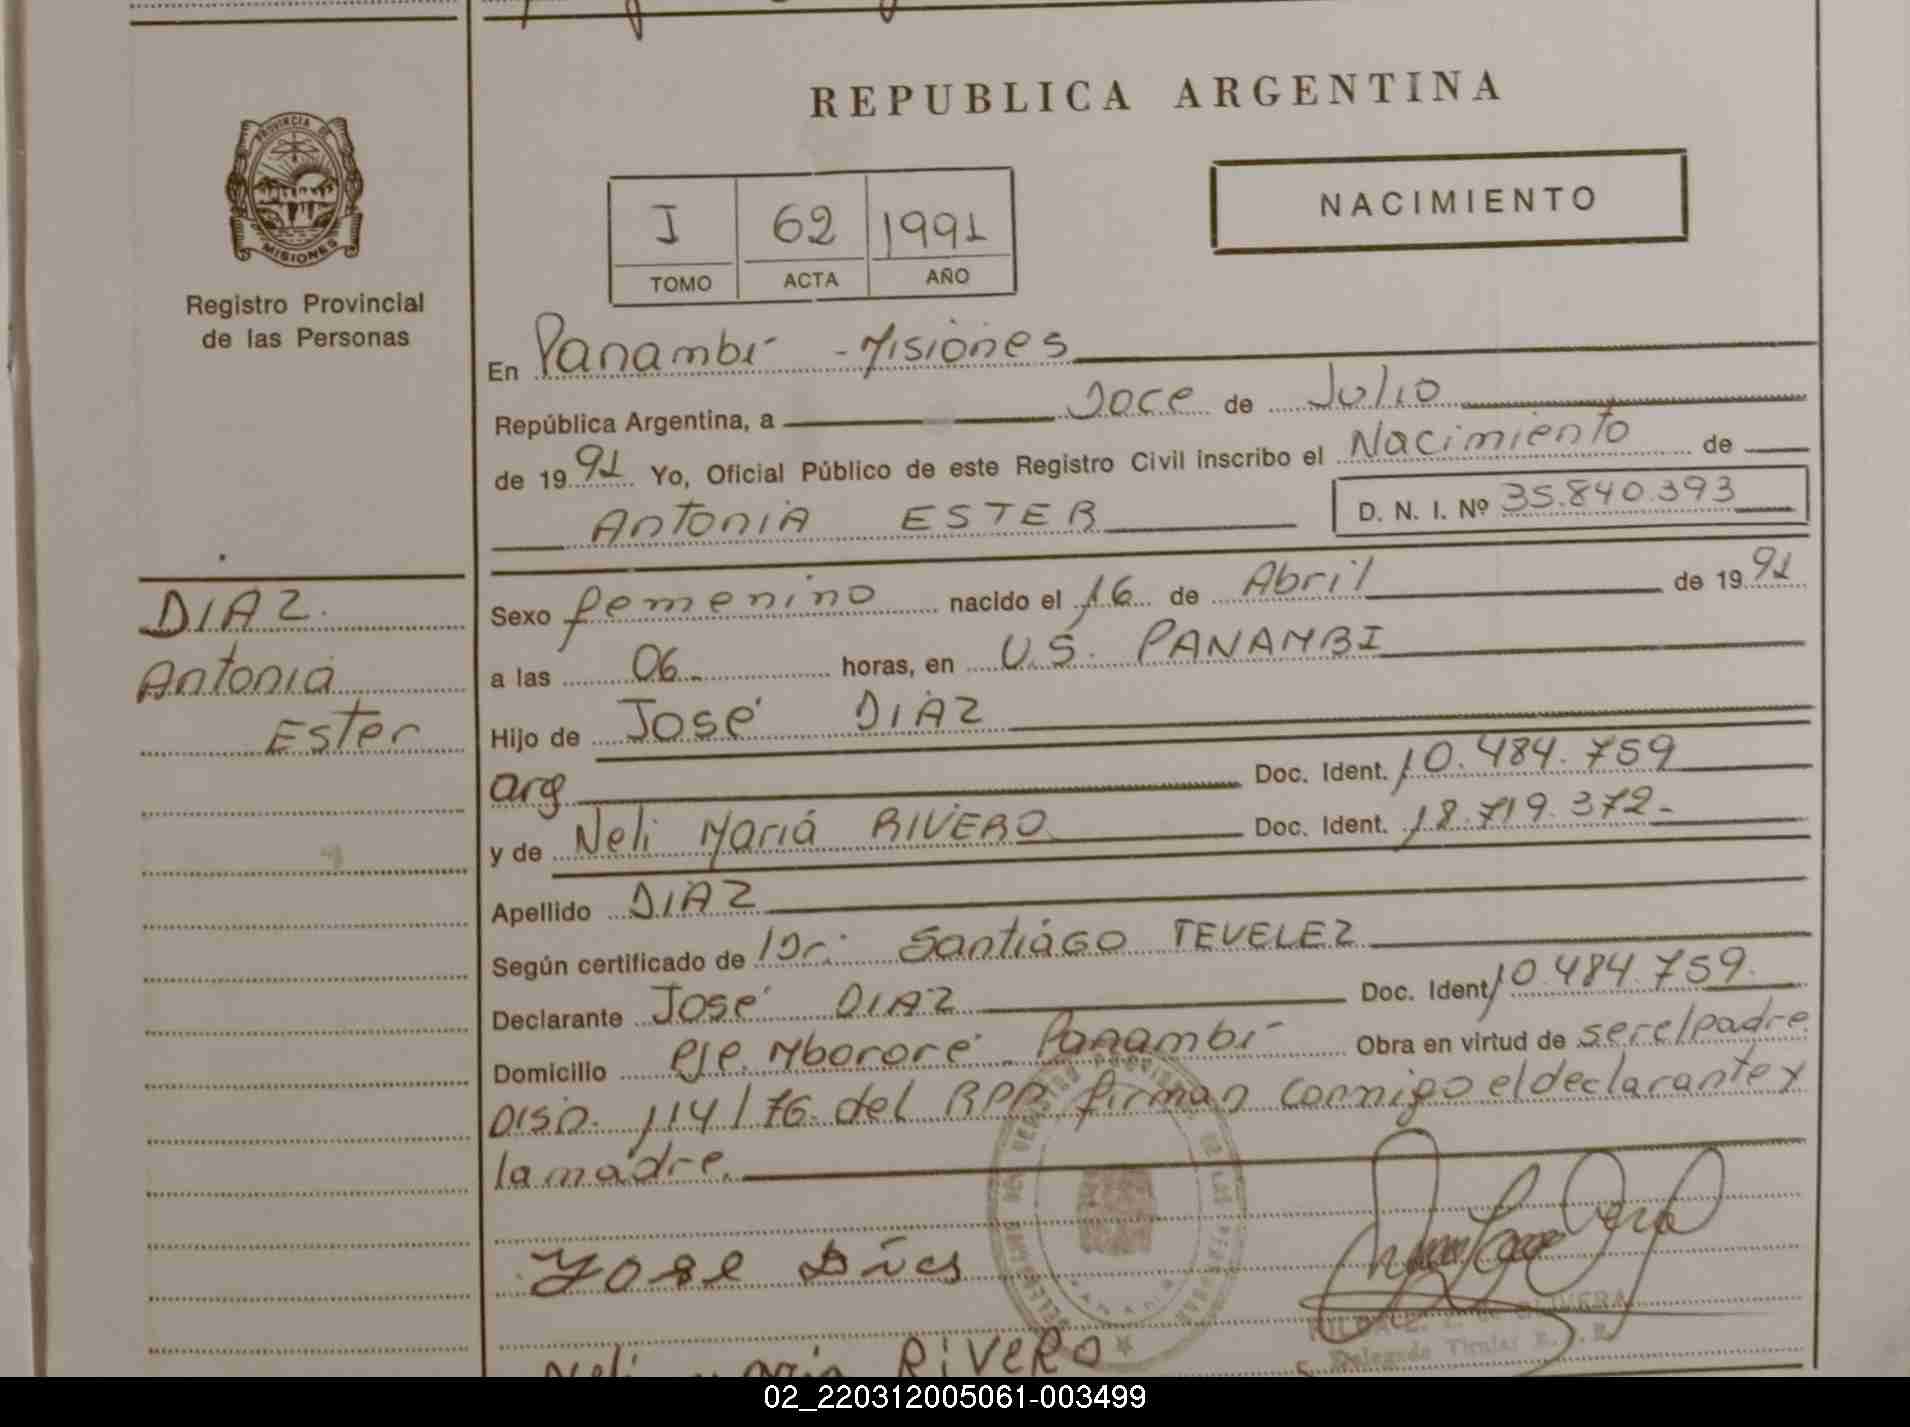 REPUBLICA ARGENTINA
PROVINCIA DE
MISIONES
Registro Provincial
de las Personas
I 62 1991
TOMO ACTA AÑO
NACIMIENTO
En Panambí - Misiones
República Argentina, a Doce de Julio
de 1991 Yo, Oficial Público de este Registro Civil inscribo el Nacimiento de
Antonia ESTER D. N. I. Nº 35.840.393
DIAZ.
Antonia
Ester
Sexo femenino nacido el 16 de Abril de 1991
a las 06 horas, en U.S. PANAMBI
Hijo de José DIAZ
arg Doc. Ident. 10.484.759
y de Neli María RIVERO Doc. Ident. 18.719.372-
Apellido DIAZ
Según certificado de Dr. Santiago TEVELEZ
Declarante José DIAZ Doc. Ident 10.484.759.
Domicilio Pje. Mbororé Panambí Obra en virtud de ser el padre
Disp. 114/76 del RPP firman conmigo el declarante y
la madre.
Yose Días
Neli maria RiVeRo
OLIVERA
Delegada Titular
02_220312005061-003499